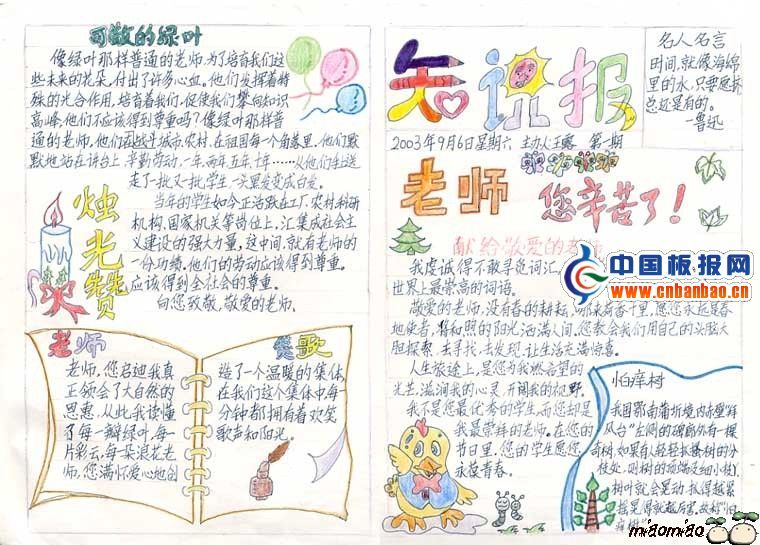 可敬的绿叶
像绿叶那样普通的老师,为了培育我们这
些未来的花朵,付出了许多心血。他们发挥着特
殊的光合作用,培育着我们,促使我们攀向知识
高峰,他们不应该得到尊重吗?像绿叶那样普
通的老师,他们 城市、农村,在祖国每一个角落里,他们默
默地站在讲台上,辛勤劳动,一年、两年、五年、十年……从他们手上送
走了一批又一批学生,一头黑发变成白发。
烛光赞
当年的学生如今正活跃在工厂、农村、科研
机构、国家机关等岗位上,汇集成社会主
义建设的强大力量,这中间,就有老师的
一份功绩,他们的劳动应该得到尊重。
应该得到全社会的尊重。
向您致敬,敬爱的老师。
老师
老师,您启迪我真
正领会了大自然的
恩惠,从此我读懂
了每一瓣绿叶,每一
片彩云,每朵浪花老
师,您满怀爱心地创
赞歌
造了一个温暖的集体,
在我们这个集体中每一
分钟都拥有着欢笑
歌声和阳光。
知识报
2003年9月6日星期六 主办人:王 第一期
名人名言
时间,就像海绵
里的水,只要愿挤,
总还是有的。
—鲁迅
老师 您辛苦了!
献给敬爱的老师
我虔诚得不敢寻觅词汇,
世界上最崇高的词语。
敬爱的老师,没有春的耕耘,哪来荷香千里,愿您永远是春
地使者,将和照的阳光洒满人间,您教会我们用自己的头脑大
胆探索,去寻找、去发现,让生活充满惊喜。
人生旅途上,是您为我燃起希望的
光芒,滋润我的心灵,开阔我的视野。
我不是您最优秀的学生,而您却是
我最崇拜的老师。在您的
节日里,您的学生愿您
永葆青春。
怕痒树
我国鄂南蒲圻境内赤壁"拜
风台"左侧的碑廊 有一棵
奇树,如果有人轻轻扒搔树的分
枝处,则树的顶端及细小枝、
树叶就会晃动,抓得越紧
摇晃得就越厉害,故称"怕
痒树"
中国板报网
www.cnbanbao.cn
miaomiao